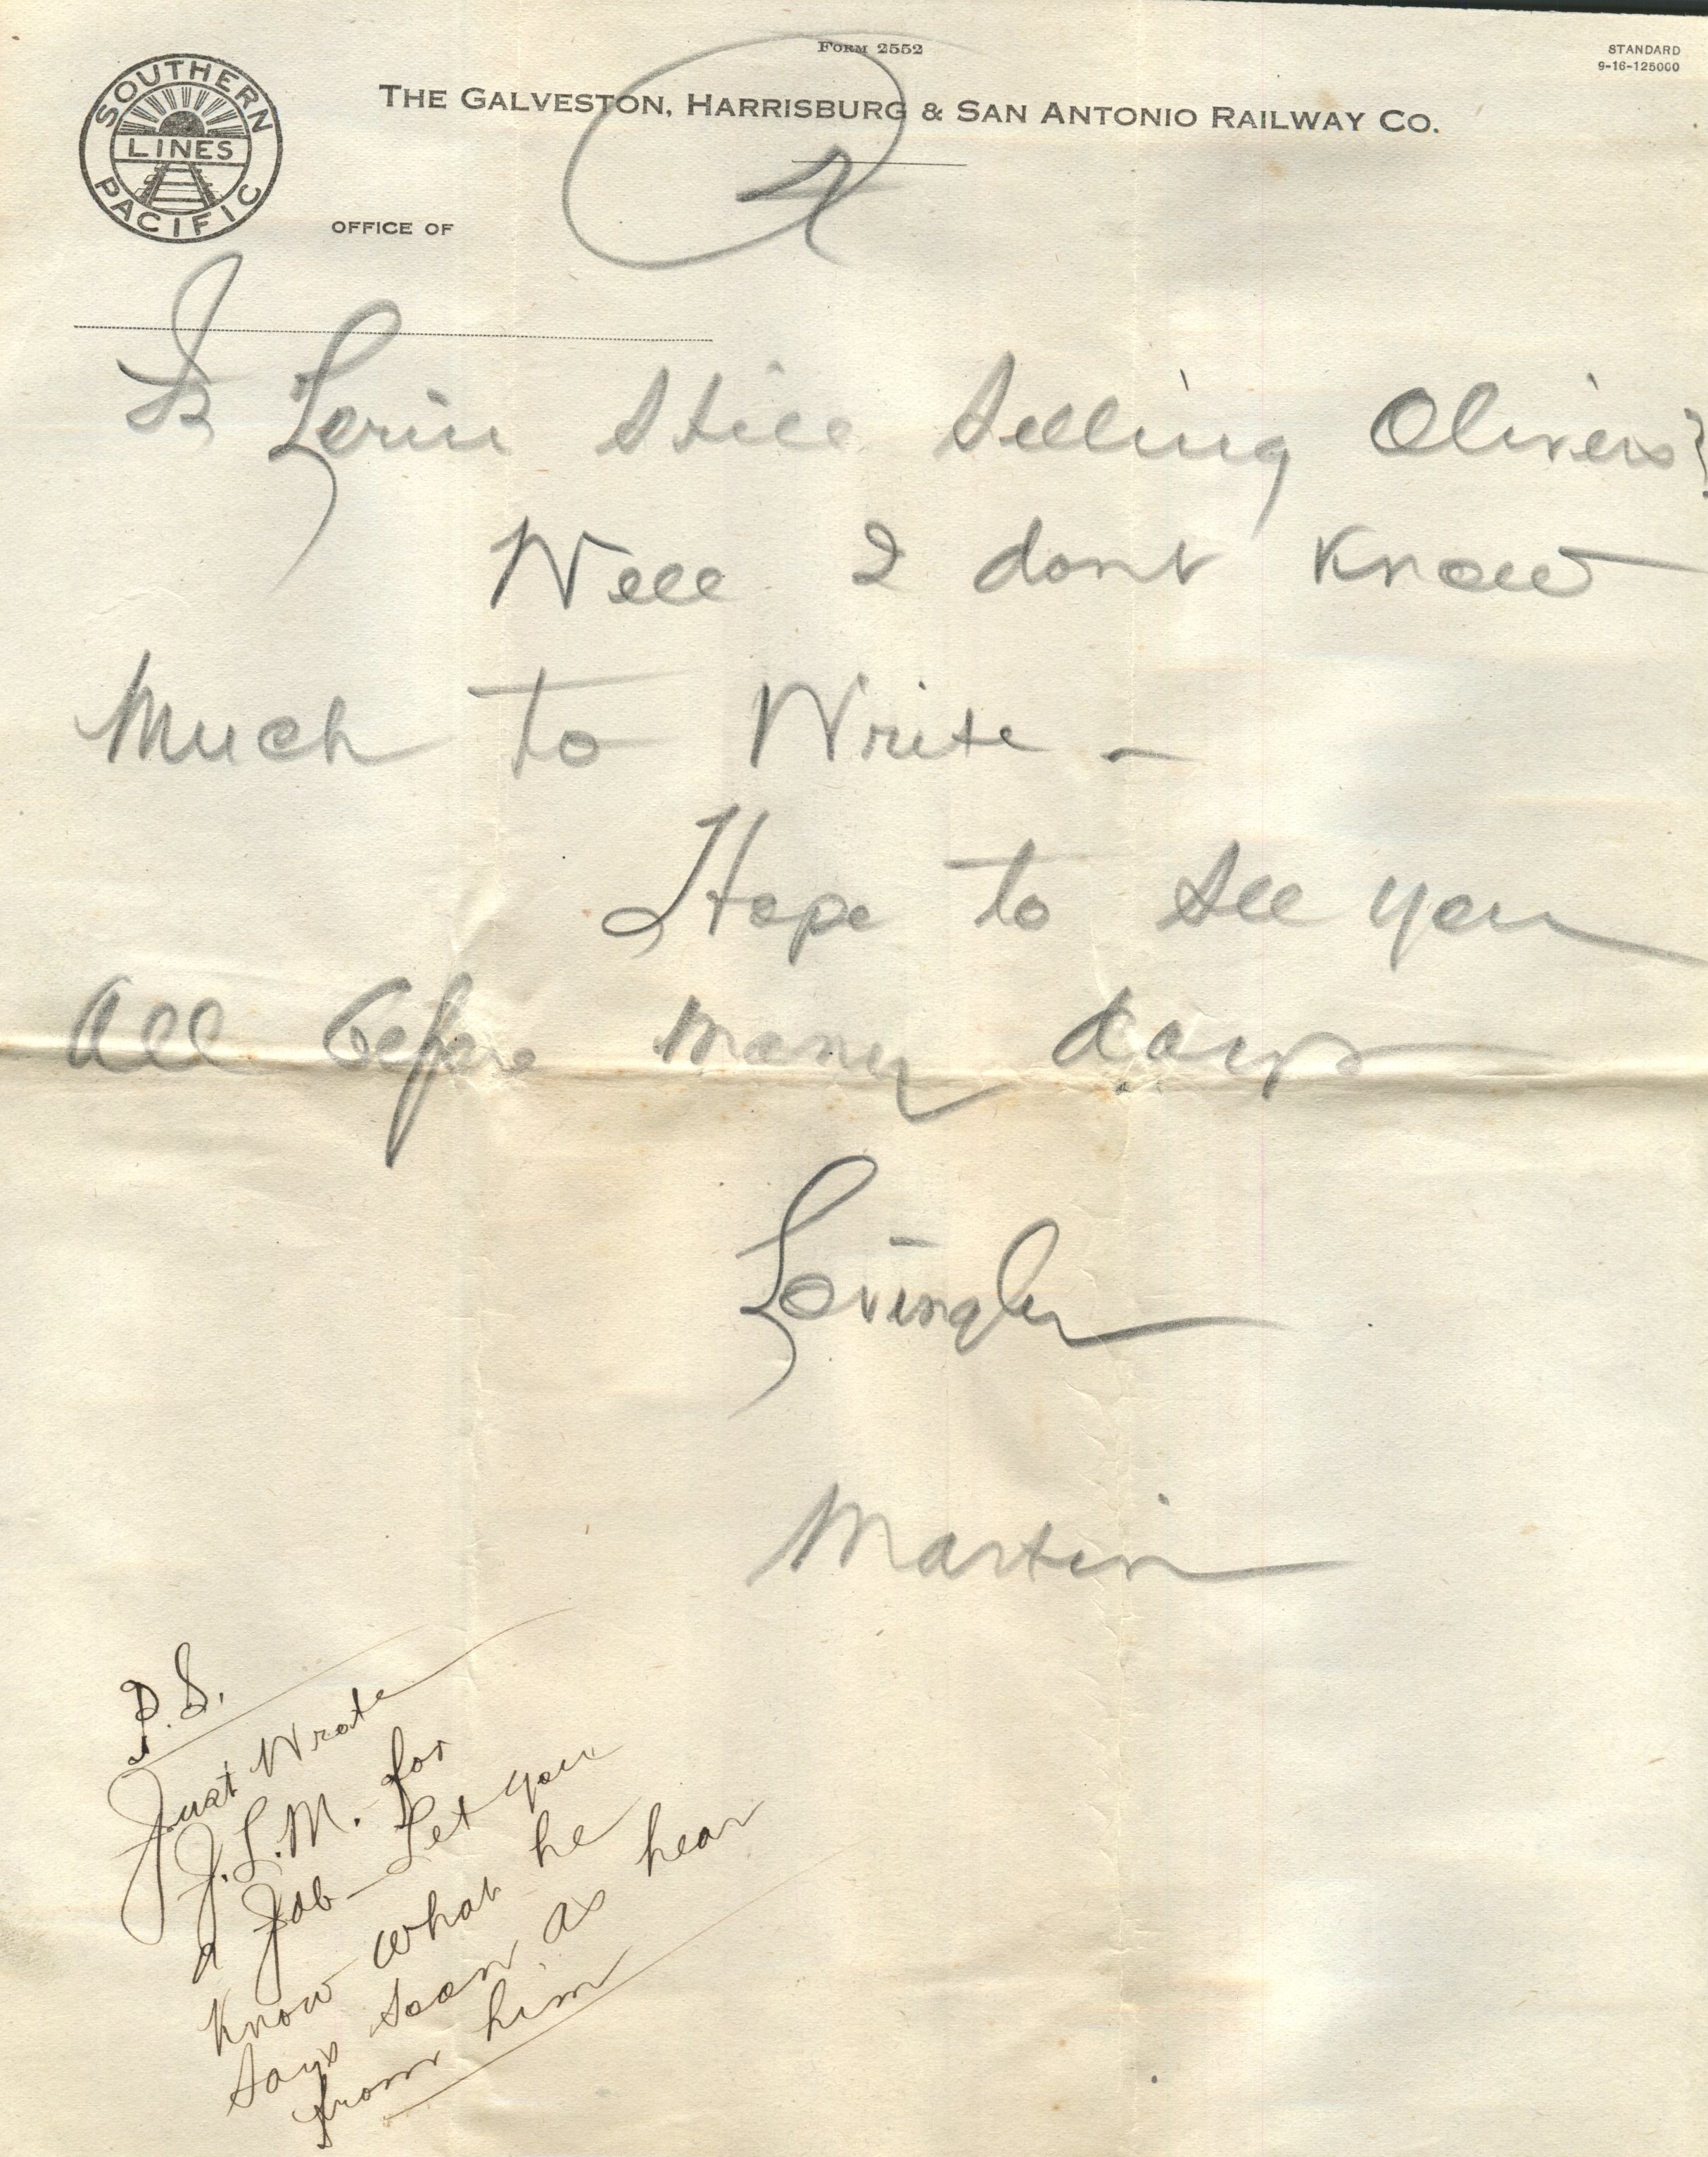 FORM 2552
STANDARD
9-16-125000
SOUTHERN
LINES
PACIFIC
THE GALVESTON, HARRISBURG & SAN ANTONIO RAILWAY CO.
4
OFFICE OF
Is Lorin still selling Olivers?
Well I dont know
Much to Write -
Hope to see you
all before many days
Lovingly
Martin
P.S.
Just Wrote
J.L.M. for
a Job - Let you
Know what he
says soon as hear
from him